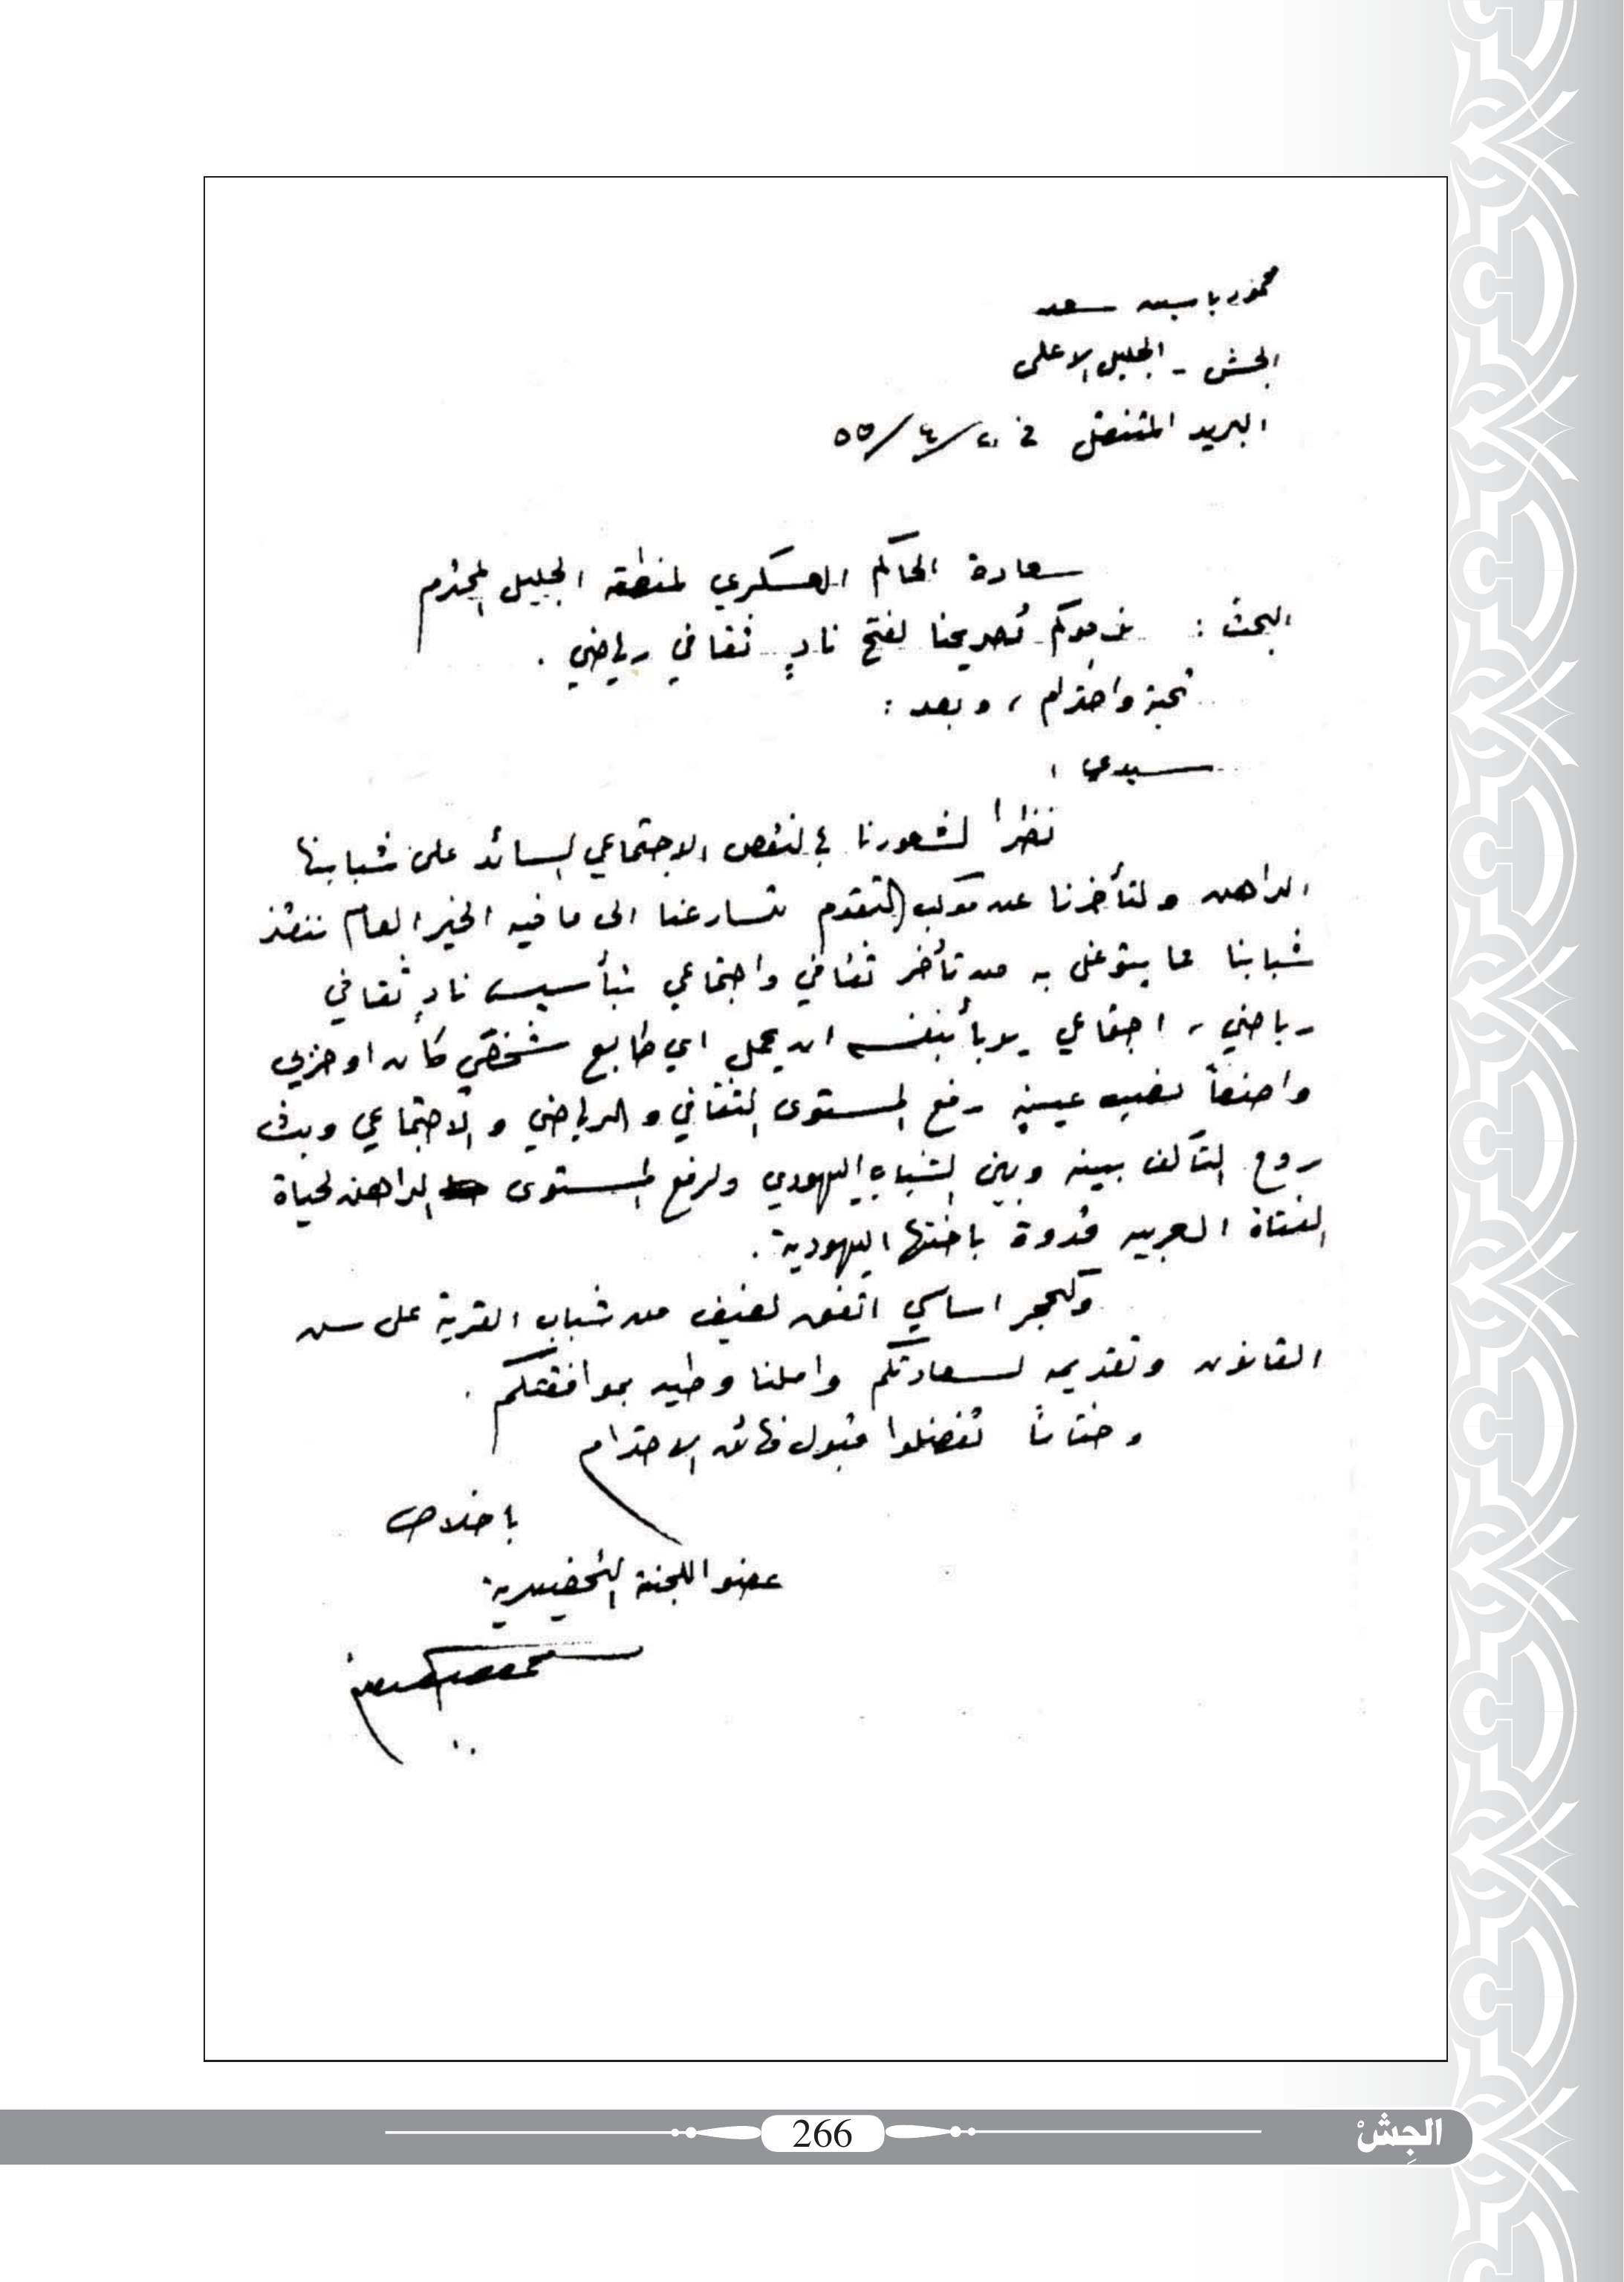 محمود ياسين سعد
الجش - الجليل الاعلى
البريد المتنقل في ٢١/٤/٥٥
سعادة الحاكم العسكري لمنطقة الجليل المحترم
البحث : تصريحنا لفتح نادٍ ثقافي رياضي .
تحية واحترام ، وبعد :
سيدي ،
نظراً لشعورنا في النقص الاجتماعي السائد على شبابنا
الراهن ولتأخرنا عن موكب التقدم تسارعنا الى ما فيه الخير العام ننقذ
شبابنا مما يتوغل به من تأخر ثقافي واجتماعي بتأسيس نادٍ ثقافي
رياضي ، اجتماعي يربأ بنفسه ان يحمل اي طابع شخصي كان او حزبي
واضعاً نصب عينيه رفع المستوى الثقافي والرياضي والاجتماعي وبث
روح التآلف بينه وبين الشباب اليهودي ولرفع المستوى الراهن لحياة
الفتاة العربية قدوة باختها اليهودية .
وكحجر اساسي اتفق لفيف من شباب القرية على سن
القانون وتقديمه لسعادتكم واملنا وطيد بموافقتكم .
وختاماً تفضلوا قبول فائق الاحترام
باخلاص
عضو اللجنة التحضيرية
266
الجِشْ